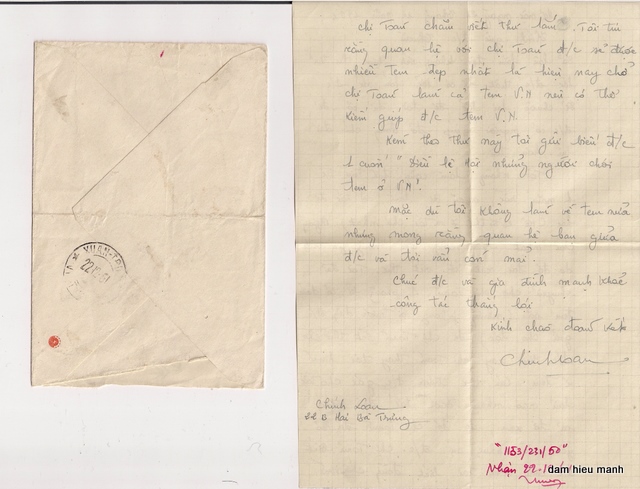 XUAN-TRU
22
61
chị Toàn chăm viết thư lắm. Tôi tin
rằng quan hệ với chị Toàn đ/c sẽ được
nhiều tem đẹp nhất là hiện nay chỗ
chị Toàn làm cả tem V.N nên có thể
kiếm giúp đ/c tem V.N.
Kèm theo thư này tôi gửi biếu đ/c
1 cuốn "Điều lệ Hội những người chơi
tem ở V.N".
Mặc dù tôi không làm về tem nữa
nhưng mong rằng quan hệ bạn giữa
đ/c và tôi vẫn còn mãi.
Chúc đ/c và gia đình mạnh khoẻ
công tác thắng lợi
Kính chào đoàn kết
Chinh Loan
Chinh Loan
Hai Bà Trưng
"1153/231/50"
Nhận 22-1
dam hieu manh